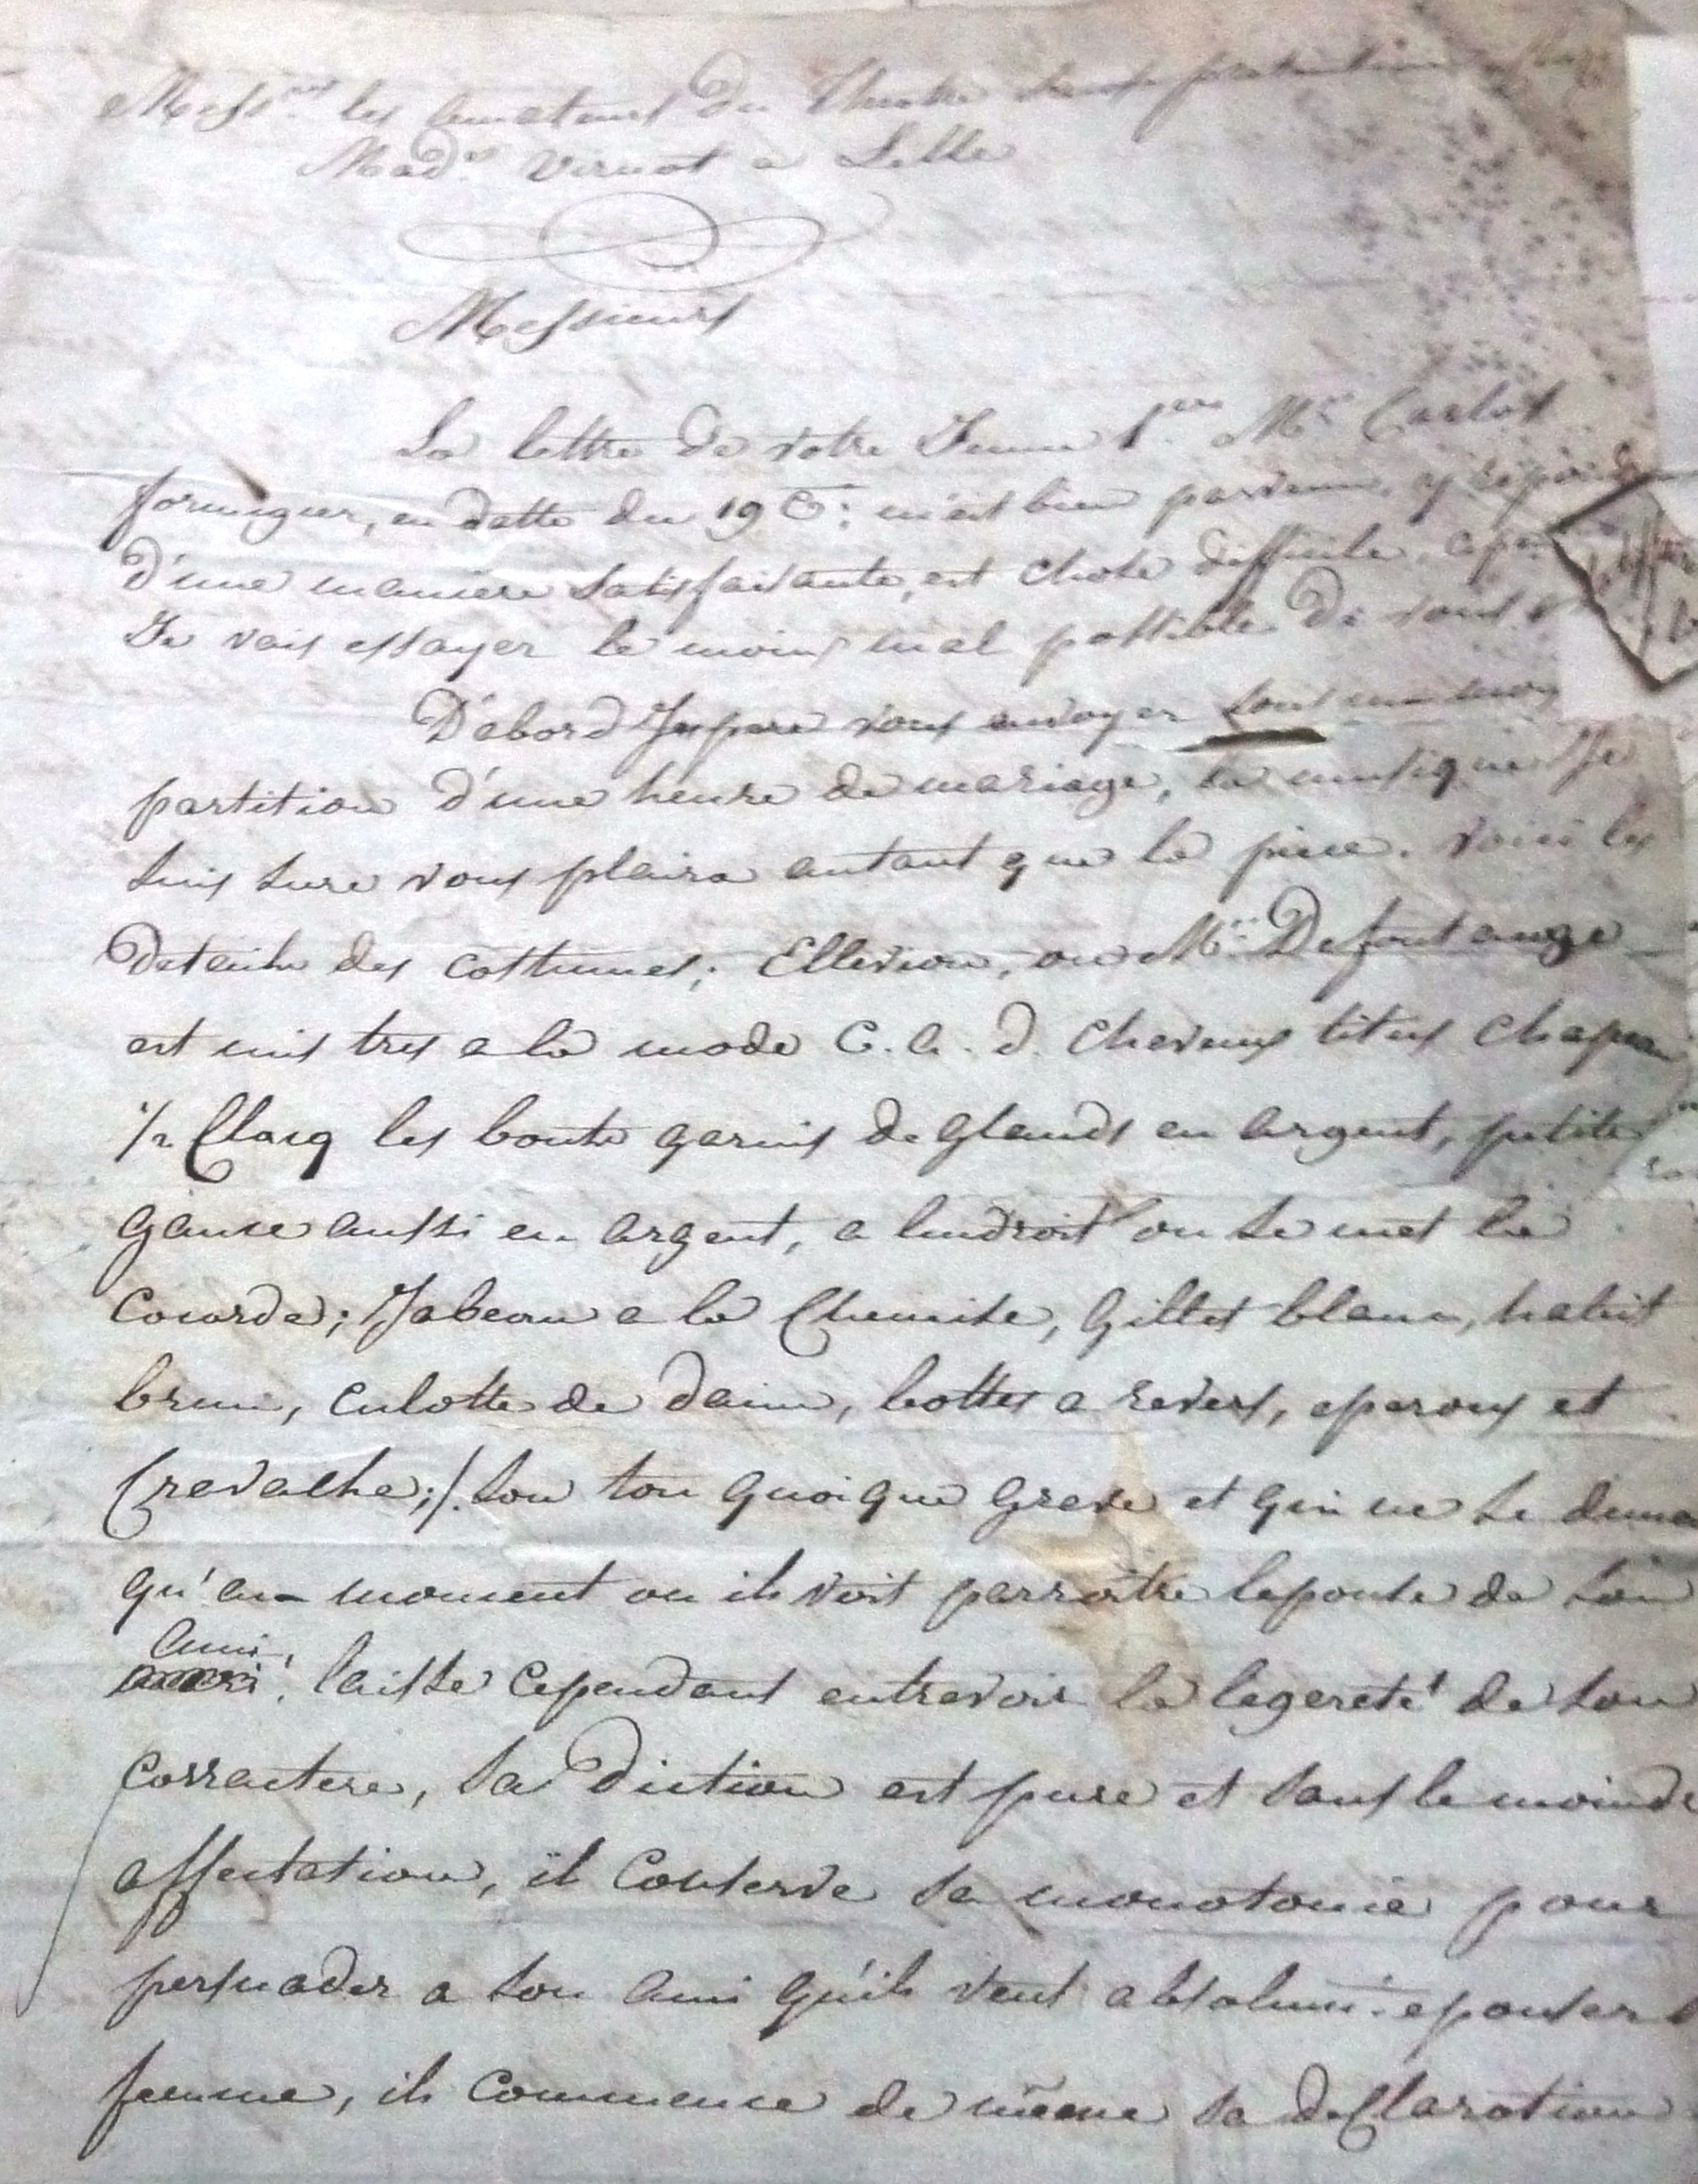 Mess.rs les amateurs du Theatre sous protection
Mad.e Virnot a Lille
Messieurs
La lettre de votre Jeune 1.er Mr. Carlos
formigier, en datte du 19 Ct: m'est bien parvenue, y repondre
d'une maniere satisfaisante, est chose difficile,
Je vais essayer le moins mal possible de vous
D'abord J'espere vous envoyer sous un mois
partition d'une heure de mariage, la musique Je
suis sure vous plaira autant que la piece. Voici les
detaihs des costumes; Ellevion, ou Mr. Defontange
est mis tres a la mode C. a. d. Cheveux titus Chapeau
1/2 Claq les bouts garnis de glands en argent, petite
gance aussi en argent, a lendroit ou se met la
Cocarde; Jabeau a la Chemise, Gillet blanc, habit
brun, culotte de daim, bottes a revers, eperons et
Crevathe; /. son ton quoique grave et qui ne se deman
qu'au moment ou ih voit parroitre lepouse de son
ami, laisse cependant entrevoir la legereté de son
carractere, sa diction est pure et sans le moindre
affectation, il Conserve sa monotonie pour
persuader a son ami qu'ih veut absolumt. epouser
femme, ih Commence de même sa declaration